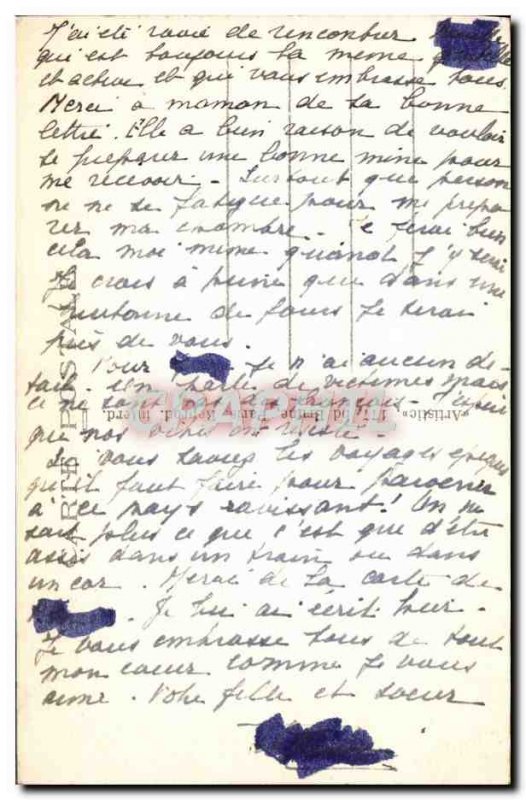 J'ai été ravie de rencontrer
qui est toujours la meme
et active et qui vous embrasse tous.
Merci à maman de sa bonne
lettre. Elle a bien raison de vouloir
se préparer une bonne mine pour
me recevoir. Surtout que person
ne ne se fatigue pour me prépa
rer ma chambre. Je ferai bien
cela moi meme quand j'y serai
Je crois à peine que dans une
de jours je serai
près de vous.
Pour je n'ai aucun dé-
tail. On parle de victimes mais
ce ne sont pas des
que nos
Si vous saviez les voyages épiques
qu'il faut faire pour parvenir
à ce pays ravissant! On ne
sait plus ce que c'est que d'être
assis dans un train ou dans
un car. Merci de la carte de
. Je lui ai écrit hier.
Je vous embrasse tous de tout
mon coeur comme je vous
aime. Votre fille et soeur
CARTE POSTALE
"Artistic"